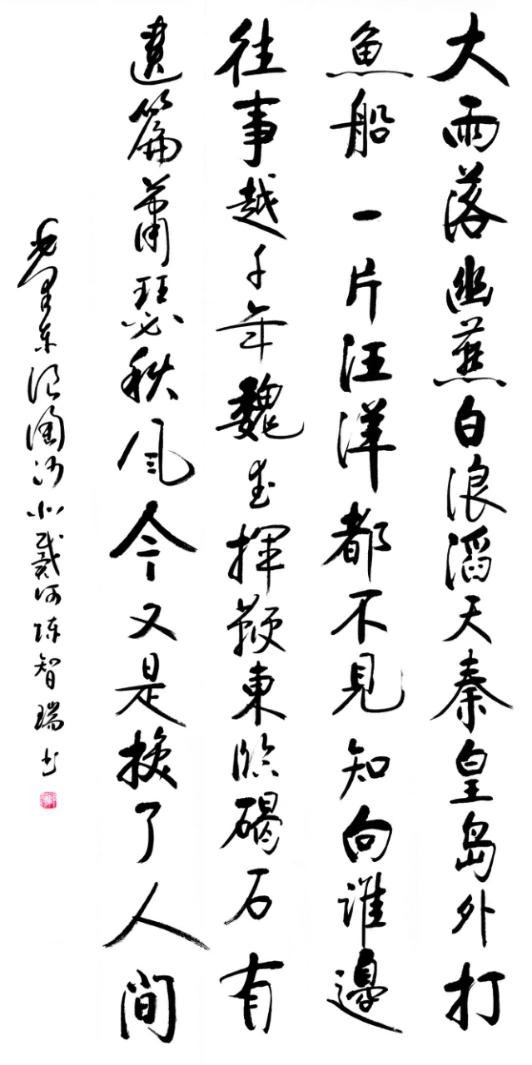 大雨落幽燕白浪滔天秦皇岛外打
鱼船一片汪洋都不見知向谁邊
往事越千年魏武揮鞭東临碣石有
遺篇萧瑟秋风今又是换了人间
毛泽东浪淘沙北戴河陈智瑞书